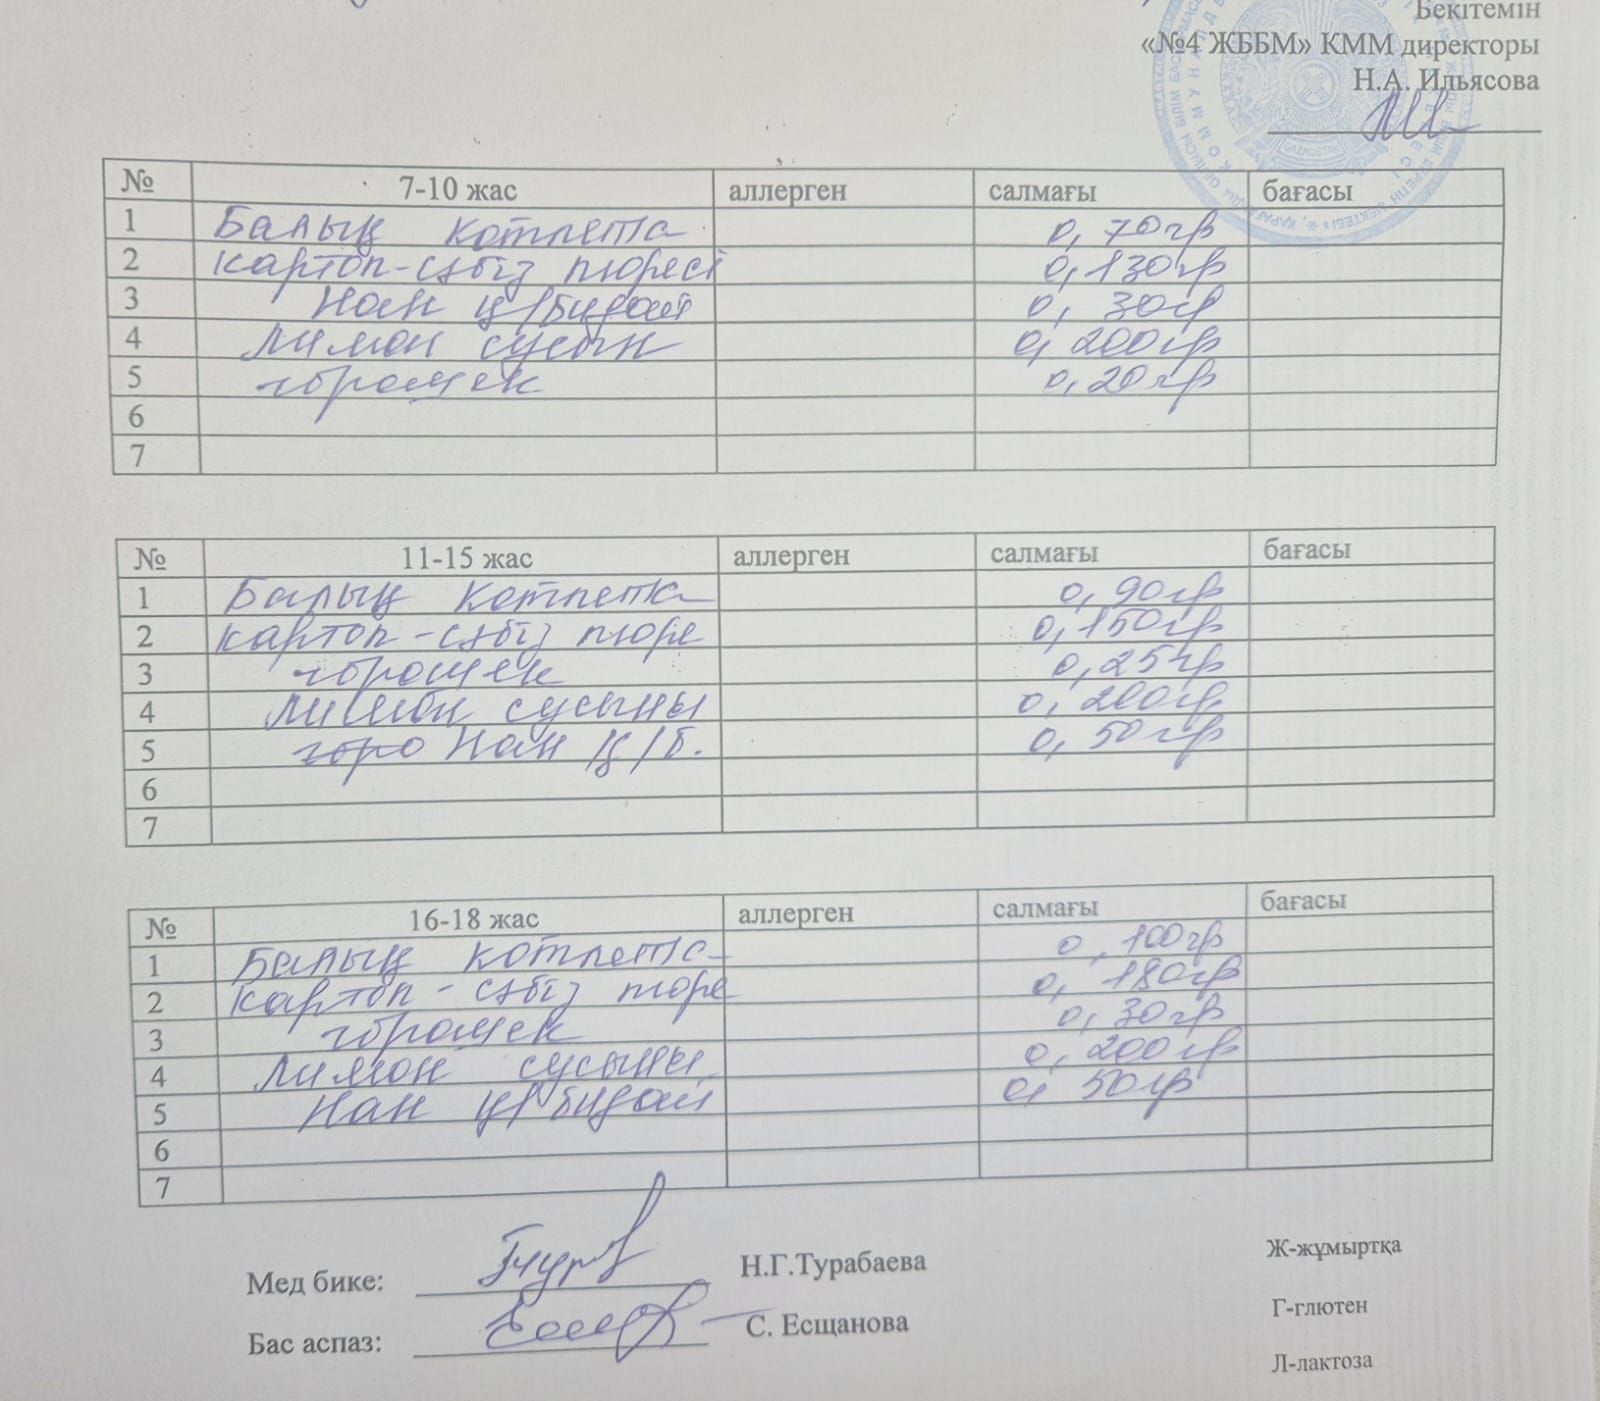 Бекітемін
«№4 ЖББМ» КММ директоры
Н.А. Ильясова
№ 7-10 жас аллерген салмағы бағасы
1 Балық котлета 0,70гр
2 картоп-сәбіз пюресі 0,130гр
3 Нан қ/бидай 0,30гр
4 Лимон сусын 0,200гр
5 горошек 0,20гр
6
7
№ 11-15 жас аллерген салмағы бағасы
1 Балық котлета 0,90гр
2 картоп-сәбіз пюре 0,150гр
3 горошек 0,25гр
4 Лимон сусыны 0,200гр
5 горо Нан қ/б. 0,50гр
6
7
№ 16-18 жас аллерген салмағы бағасы
1 Балық котлета 0,100гр
2 картоп-сәбіз пюре 0,180гр
3 горошек 0,30гр
4 Лимон сусыны 0,200гр
5 Нан қ/бидай 0,50гр
6
7
Мед бике: Н.Г.Турабаева
Бас аспаз: С. Есщанова
Ж-жұмыртқа
Г-глютен
Л-лактоза